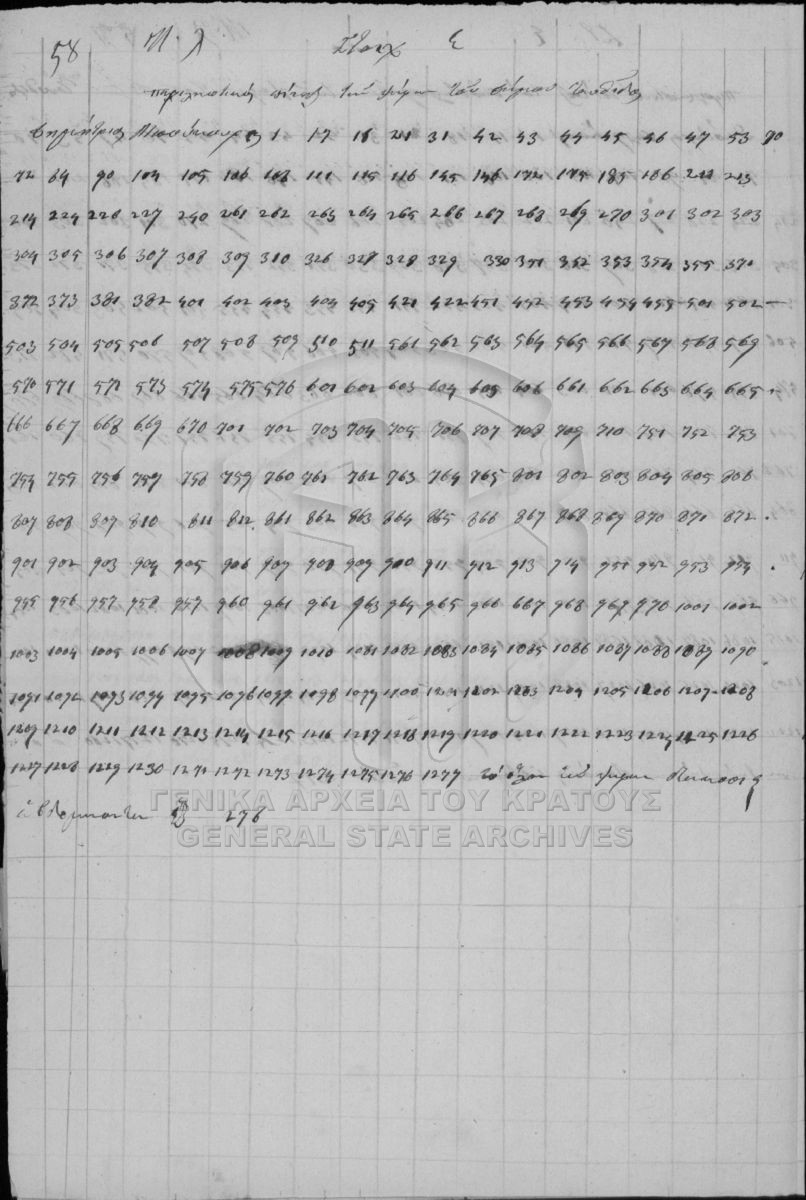 58 Μ. λ Στοιχ Ε
περιληπτικός πίναξ τῶν ψήφων τοῦ κυρίου
Δημήτριος 1 17 18 21 31 42 43 44 45 46 47 53 70
72 84 90 104 105 106 108 111 115 116 145 146 172 175 185 186 212 213
214 224 226 227 240 261 262 263 264 265 266 267 268 269 270 301 302 303
304 305 306 307 308 309 310 326 327 328 329 330 351 352 353 354 355 371
372 373 381 382 401 402 403 404 405 421 422 451 452 453 454 455 501 502 —
503 504 505 506 507 508 509 510 511 561 562 563 564 565 566 567 568 569
570 571 572 573 574 575 576 601 602 603 604 605 606 661 662 663 664 665 -
666 667 668 669 670 701 702 703 704 705 706 707 708 709 710 751 752 753
754 755 756 757 758 759 760 761 762 763 764 765 801 802 803 804 805 806
807 808 809 810 811 812 861 862 863 864 865 866 867 868 869 870 871 872 .
901 902 903 904 905 906 907 908 909 910 911 912 913 914 951 952 953 954 .
955 956 957 958 959 960 961 962 963 964 965 966 967 968 969 970 1001 1002
1003 1004 1005 1006 1007 1008 1009 1010 1081 1082 1083 1084 1085 1086 1087 1088 1089 1090
1091 1092 1093 1094 1095 1096 1097 1098 1099 1100 1201 1202 1203 1204 1205 1206 1207 1208
1209 1210 1211 1212 1213 1214 1215 1216 1217 1218 1219 1220 1221 1222 1223 1224 1225 1226
1227 1228 1229 1230 1271 1272 1273 1274 1275 1276 1277 τὸ ὅλον τῶν ψήφων διακόσιαι
ἑβδομήκοντα 276
ΓΕΝΙΚΑ ΑΡΧΕΙΑ ΤΟΥ ΚΡΑΤΟΥΣ
GENERAL STATE ARCHIVES